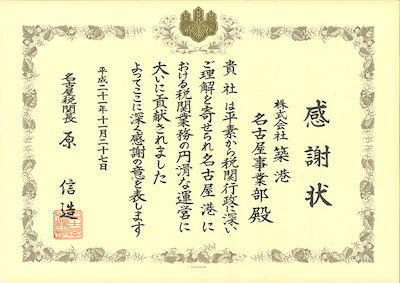 感謝状
株式会社 築港
名古屋事業部 殿
貴社は平素から税関行政に深い
ご理解を寄せられ名古屋港に
おける税関業務の円滑な運営に
大いに貢献されました
よってここに深く感謝の意を表します
平成二十一年十一月二十七日
名古屋税関長 原 信造